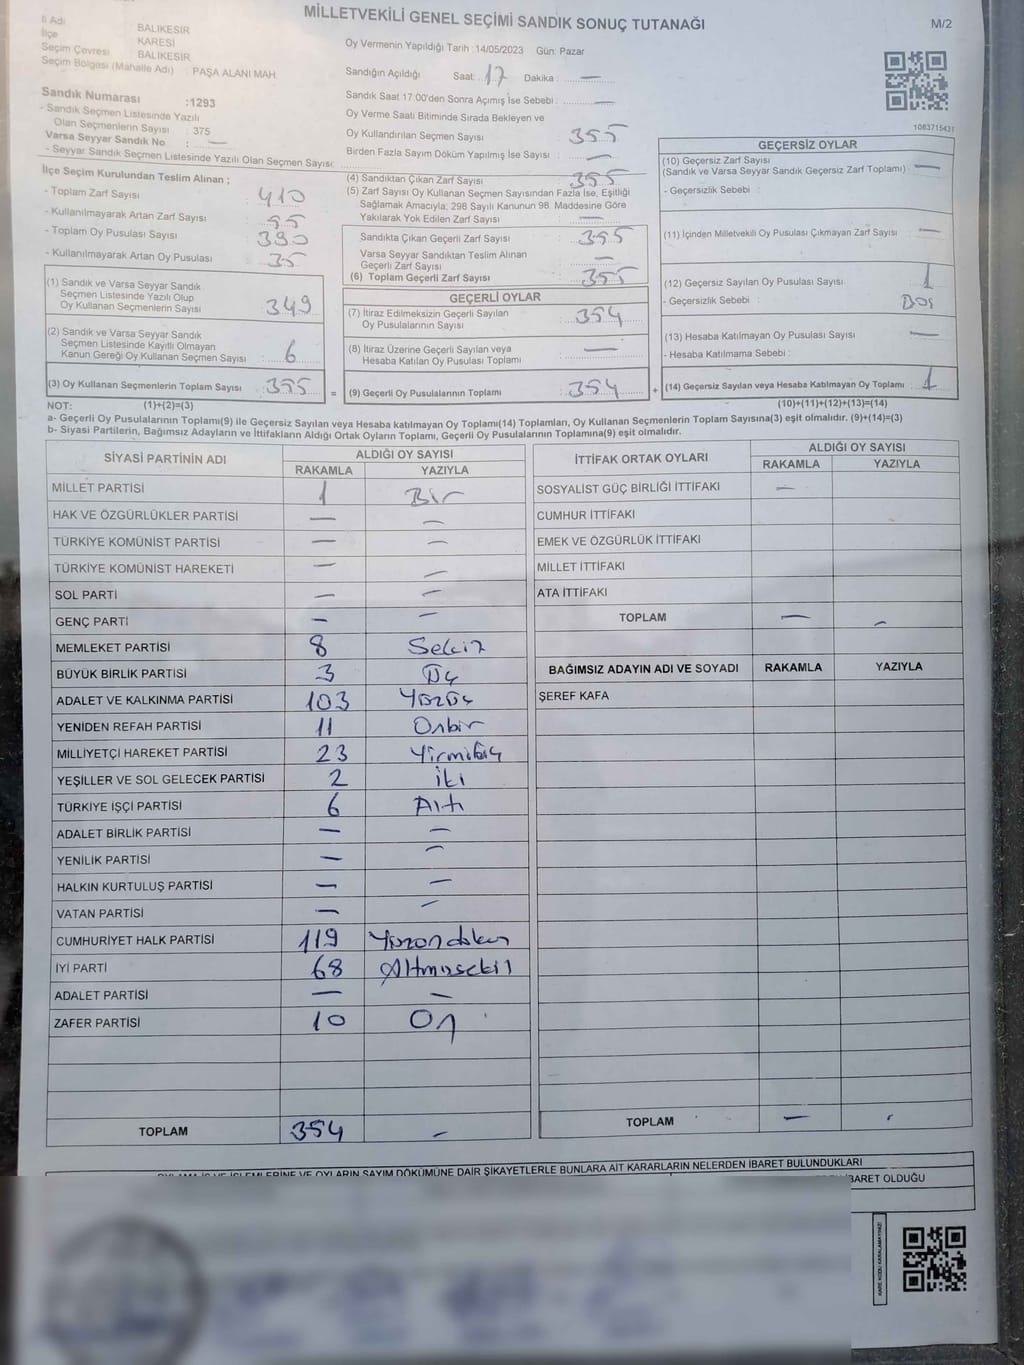 MİLLETVEKİLİ GENEL SEÇİMİ SANDIK SONUÇ TUTANAĞI
M/2
İl Adı BALIKESİR
İlçe KARESİ
Seçim Çevresi BALIKESİR
Seçim Bölgesi (Mahalle Adı) : PAŞA ALANI MAH.
Sandık Numarası :1293
- Sandık Seçmen Listesinde Yazılı
Olan Seçmenlerin Sayısı : 375
Varsa Seyyar Sandık No : —
- Seyyar Sandık Seçmen Listesinde Yazılı Olan Seçmen Sayısı:
Oy Vermenin Yapıldığı Tarih : 14/05/2023 Gün: Pazar
Sandığın Açıldığı Saat: 17 Dakika : —
Sandık Saat 17:00'den Sonra Açımış İse Sebebi : —
Oy Verme Saati Bitiminde Sırada Bekleyen ve
Oy Kullandırılan Seçmen Sayısı 355
Birden Fazla Sayım Döküm Yapılmış İse Sayısı : —
1083715431
İlçe Seçim Kurulundan Teslim Alınan ;
- Toplam Zarf Sayısı : 410
- Kullanılmayarak Artan Zarf Sayısı : 55
- Toplam Oy Pusulası Sayısı : 390
- Kullanılmayarak Artan Oy Pusulası : 35
(1) Sandık ve Varsa Seyyar Sandık
Seçmen Listesinde Yazılı Olup
Oy Kullanan Seçmenlerin Sayısı : 349
(2) Sandık ve Varsa Seyyar Sandık
Seçmen Listesinde Kayıtlı Olmayan
Kanun Gereği Oy Kullanan Seçmen Sayısı : 6
(3) Oy Kullanan Seçmenlerin Toplam Sayısı : 355
(4) Sandıktan Çıkan Zarf Sayısı : 355
(5) Zarf Sayısı Oy Kullanan Seçmen Sayısından Fazla İse, Eşitliği
Sağlamak Amacıyla; 298 Sayılı Kanunun 98. Maddesine Göre
Yakılarak Yok Edilen Zarf Sayısı : —
Sandıkta Çıkan Geçerli Zarf Sayısı : 355
Varsa Seyyar Sandıktan Teslim Alınan
Geçerli Zarf Sayısı : —
(6) Toplam Geçerli Zarf Sayısı : 355
GEÇERLİ OYLAR
(7) İtiraz Edilmeksizin Geçerli Sayılan
Oy Pusulalarının Sayısı : 354
(8) İtiraz Üzerine Geçerli Sayılan veya
Hesaba Katılan Oy Pusulası Toplamı : —
= (9) Geçerli Oy Pusulalarının Toplamı : 354 +
GEÇERSİZ OYLAR
(10) Geçersiz Zarf Sayısı
(Sandık ve Varsa Seyyar Sandık Geçersiz Zarf Toplamı) : —
- Geçersizlik Sebebi :
(11) İçinden Milletvekili Oy Pusulası Çıkmayan Zarf Sayısı : —
(12) Geçersiz Sayılan Oy Pusulası Sayısı : 1
- Geçersizlik Sebebi : BOŞ
(13) Hesaba Katılmayan Oy Pusulası Sayısı : —
- Hesaba Katılmama Sebebi :
(14) Geçersiz Sayılan veya Hesaba Katılmayan Oy Toplamı : 1
NOT: (1)+(2)=(3) (10)+(11)+(12)+(13)=(14)
a- Geçerli Oy Pusulalarının Toplamı(9) ile Geçersiz Sayılan veya Hesaba katılmayan Oy Toplamı(14) Toplamları, Oy Kullanan Seçmenlerin Toplam Sayısına(3) eşit olmalıdır. (9)+(14)=(3)
b- Siyasi Partilerin, Bağımsız Adayların ve İttifakların Aldığı Ortak Oyların Toplamı, Geçerli Oy Pusulalarının Toplamına(9) eşit olmalıdır.
SİYASİ PARTİNİN ADI ALDIĞI OY SAYISI
RAKAMLA YAZIYLA
MİLLET PARTİSİ 1 Bir
HAK VE ÖZGÜRLÜKLER PARTİSİ — —
TÜRKİYE KOMÜNİST PARTİSİ — —
TÜRKİYE KOMÜNİST HAREKETİ — —
SOL PARTİ — —
GENÇ PARTİ — —
MEMLEKET PARTİSİ 8 Sekiz
BÜYÜK BİRLİK PARTİSİ 3 Üç
ADALET VE KALKINMA PARTİSİ 103 Yüzüç
YENİDEN REFAH PARTİSİ 11 Onbir
MİLLİYETÇİ HAREKET PARTİSİ 23 Yirmiüç
YEŞİLLER VE SOL GELECEK PARTİSİ 2 İki
TÜRKİYE İŞÇİ PARTİSİ 6 Altı
ADALET BİRLİK PARTİSİ — —
YENİLİK PARTİSİ — —
HALKIN KURTULUŞ PARTİSİ — —
VATAN PARTİSİ — —
CUMHURİYET HALK PARTİSİ 119 Yüzondokuz
İYİ PARTİ 68 Altmışsekiz
ADALET PARTİSİ — —
ZAFER PARTİSİ 10 On
TOPLAM 354 —
İTTİFAK ORTAK OYLARI ALDIĞI OY SAYISI
RAKAMLA YAZIYLA
SOSYALİST GÜÇ BİRLİĞİ İTTİFAKI —
CUMHUR İTTİFAKI
EMEK VE ÖZGÜRLÜK İTTİFAKI
MİLLET İTTİFAKI
ATA İTTİFAKI
TOPLAM — —
BAĞIMSIZ ADAYIN ADI VE SOYADI RAKAMLA YAZIYLA
ŞEREF KAFA
TOPLAM —
OYLARIN SAYIM DÖKÜMÜNE DAİR ŞİKAYETLERLE BUNLARA AİT KARARLARIN NELERDEN İBARET BULUNDUKLARI
İBARET OLDUĞU
KARE KODU KARALAMAYINIZ!